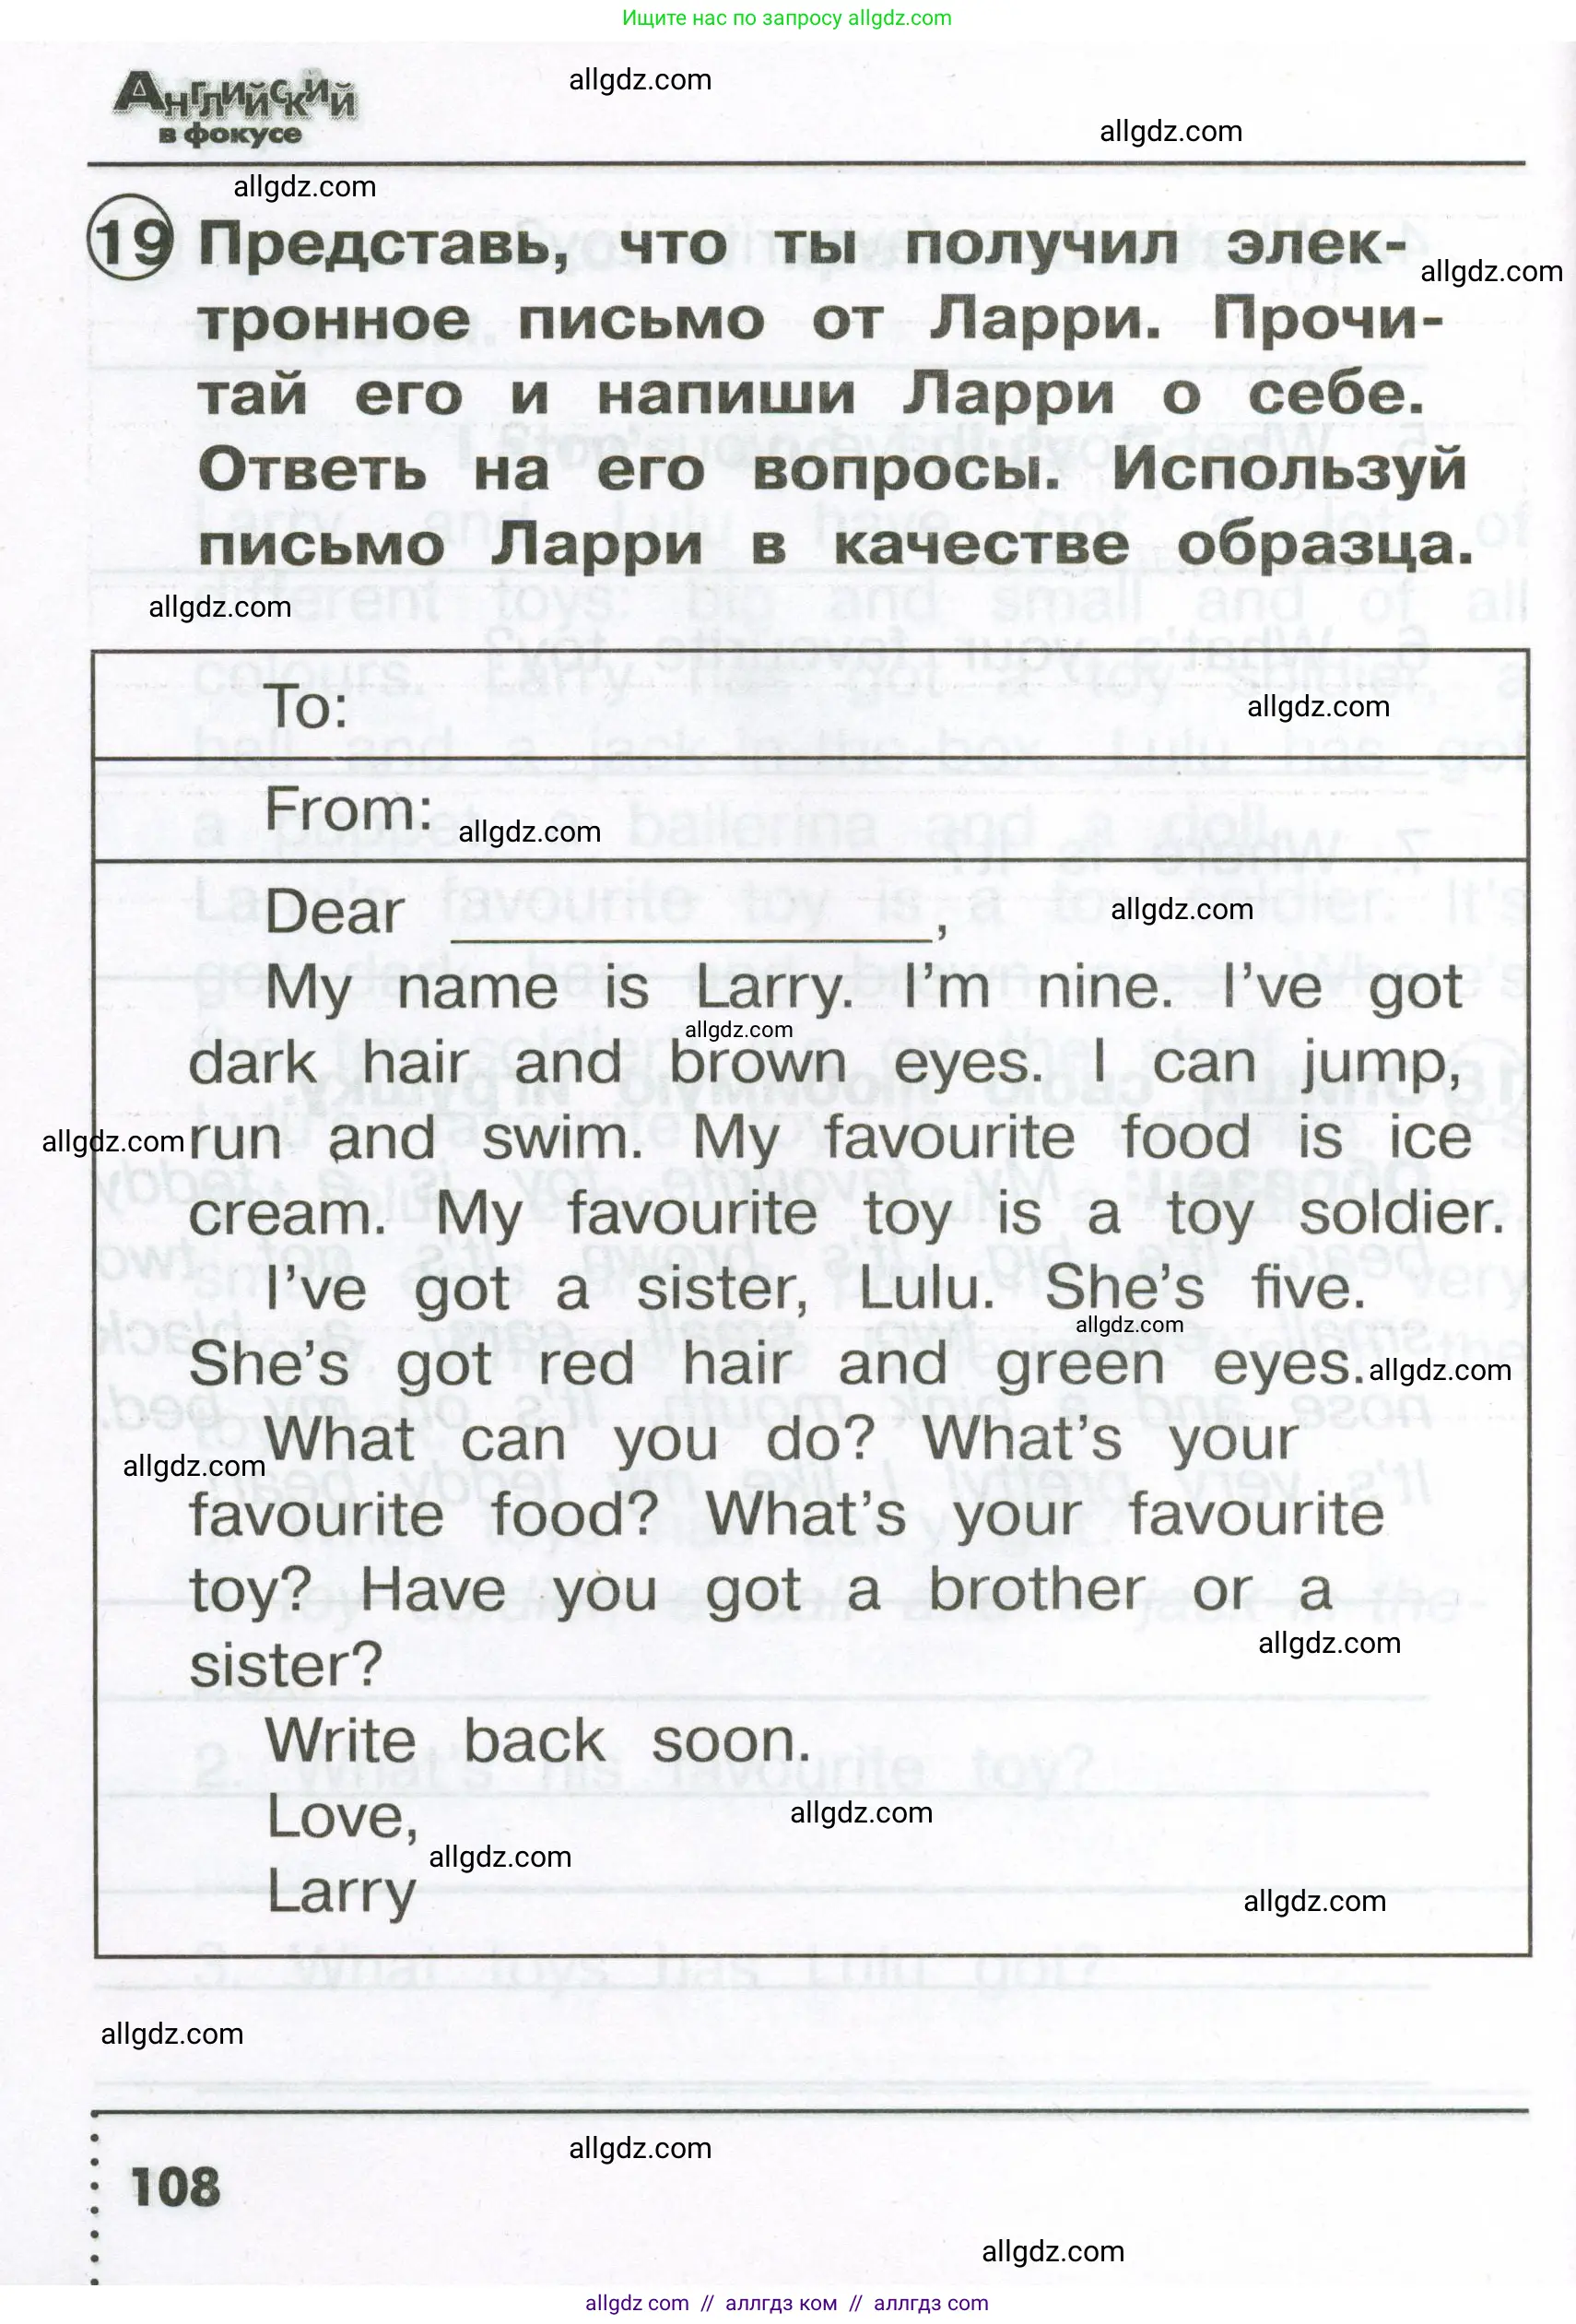 Ищите нас по запросу allgdz.com
Английский
в фокусе
allgdz.com
allgdz.com
allgdz.com
19 Представь, что ты получил элек-
allgdz.com
тронное письмо от Ларри. Прочи-
тай его и напиши Ларри о себе.
Ответь на его вопросы. Используй
письмо Ларри в качестве образца.
allgdz.com
To:
allgdz.com
From:
allgdz.com
Dear ____________,
allgdz.com
My name is Larry. I'm nine. I've got
allgdz.com
dark hair and brown eyes. I can jump,
allgdz.com
run and swim. My favourite food is ice
cream. My favourite toy is a toy soldier.
I've got a sister, Lulu. She's five.
allgdz.com
She's got red hair and green eyes.
allgdz.com
What can you do? What's your
allgdz.com
favourite food? What's your favourite
toy? Have you got a brother or a
allgdz.com
sister?
Write back soon.
Love,
allgdz.com
allgdz.com
Larry
allgdz.com
allgdz.com
allgdz.com
108
allgdz.com
allgdz com // аллгдз ком // аллгдз com